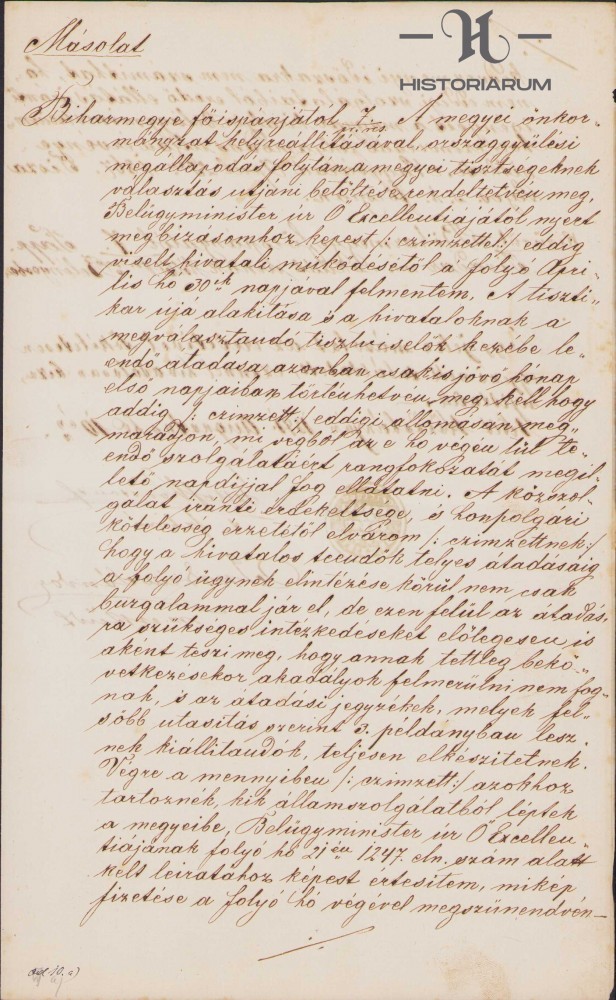 H
HISTORIARUM
Másolat
Biharmegye főispánjától 7. A megyei önkor-
mányzat helyreállitásával, országgyülési
megállapodás folytán a megyei tisztségeknek
választás utjáni betöltése rendeltetvén meg,
Belügyminister úr Ő Excellentiájától nyert
megbizásomhoz képest /: czimzettet :/ eddig
viselt hivatali müködésétől a folyó Ápri-
lis hó 30ik napjával felmentem. A tiszti-
kar újjá alakitása s a hivataloknak a
megválasztandó tisztviselők kezébe le-
endő átadása azonban csakis jövő hónap
első napjaiban történhetvén meg, kell hogy
addig /: czimzett :/ eddigi állomásán meg-
maradjon, mi végből az e hó végén túl te-
endő szolgálatáért rangfokozatát megil-
lető napdijjal fog elláttatni. A közszol-
gálat iránti érdekeltsége, és honpolgári
kötelesség érzetétől elvárom /: czimzettnek :/
hogy a hivatalos teendők teljes átadásáig
a folyó ügynek elintézése körül nem csak
buzgalommal jár el, de ezen felül az átadás-
ra szükséges intézkedéseket előlegesen is
akként teszi meg, hogy annak tettleg bekö-
vetkezésekor akadályok felmerülni nem fog-
nak, s az átadási jegyzékek, melyek fel-
sőbb utasitás szerint 3. példányban lesz-
nek kiállitandók, teljesen elkészitetnek.
Végre a mennyiben /: czimzett :/ azokhoz
tartoznék, kik államszolgálatból léptek
a megyeibe, Belügyminister úr Ő Excellen-
tiájának folyó hó 21én 1247. eln. szám alatt
kelt leiratához képest értesitem, mikép
fizetése a folyó hó végével megszünendvén-